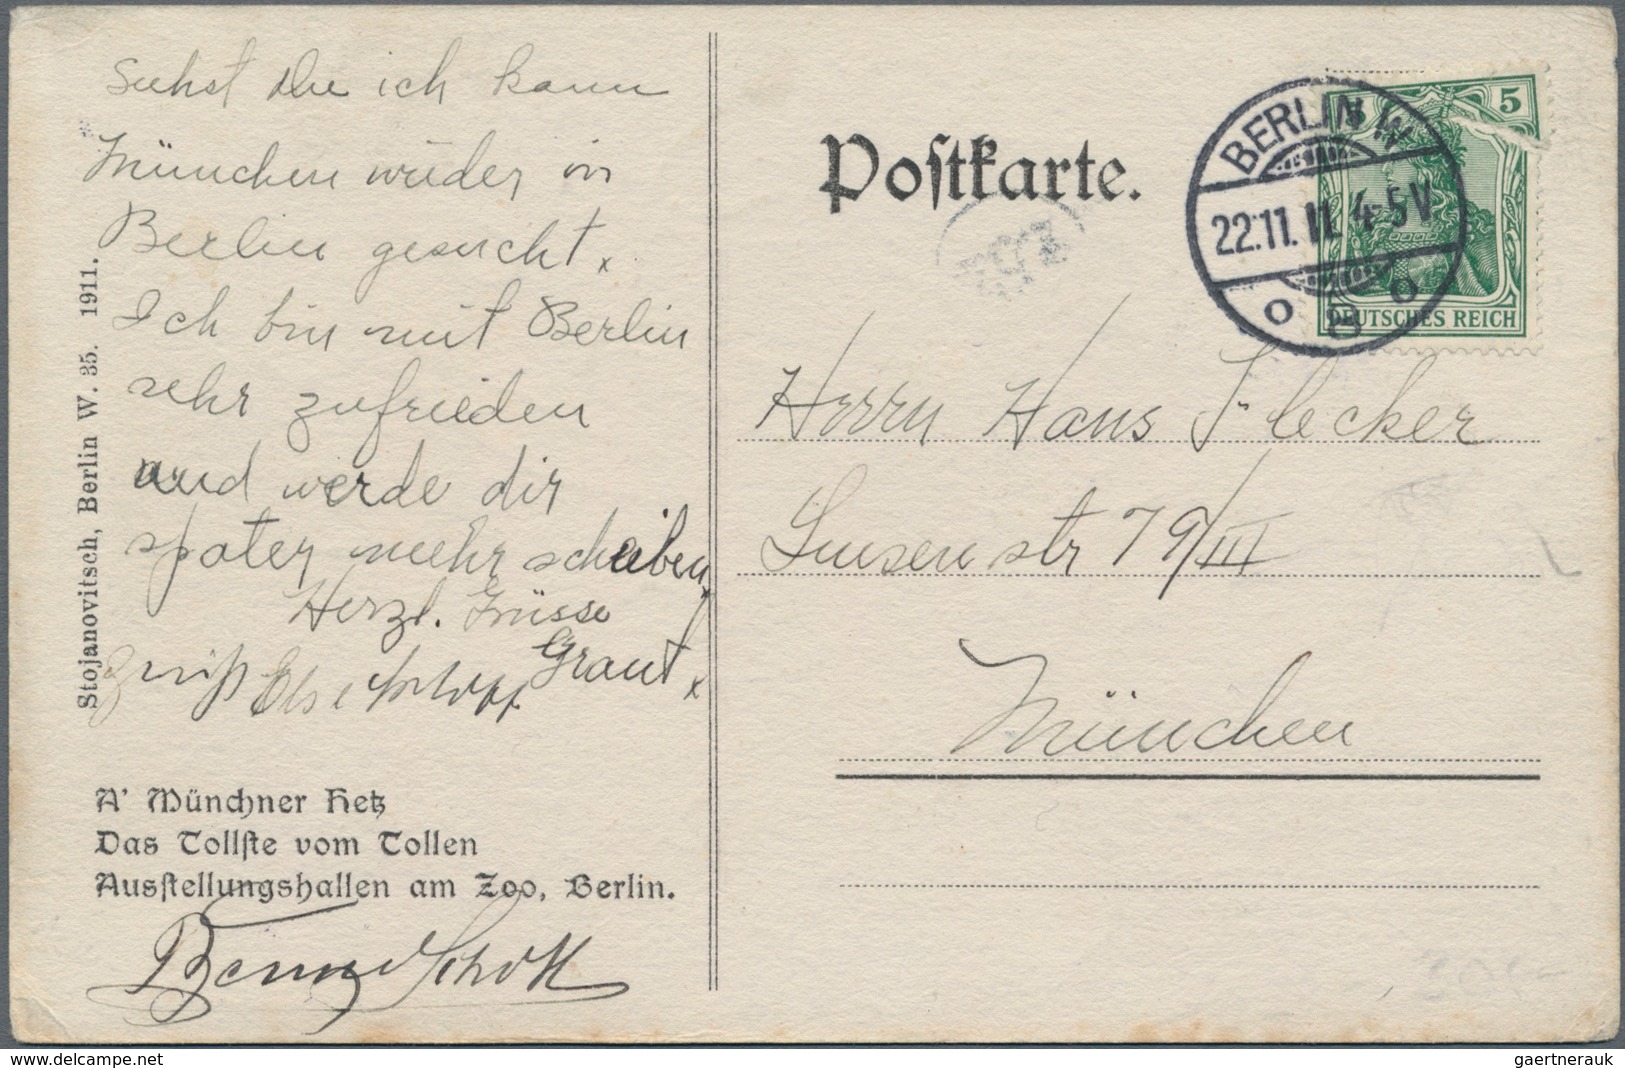 Suhst Du ich kann
München wieder in
Berlin gesucht.
Ich bin mit Berlin
sehr zufrieden
und werde dir
später mehr schreiben.
Herzl. Grüsse
Grant
Else
Stojanovitsch, Berlin W. 35. 1911.
A' Münchner Hetz
Das Tollste vom Tollen
Ausstellungshallen am Zoo, Berlin.
Schott
Postkarte.
BERLIN W
22.11.11. 4-5V
5
DEUTSCHES REICH
Herrn Hans Flecker
Luisen str 79/III
München
gaertnerauk